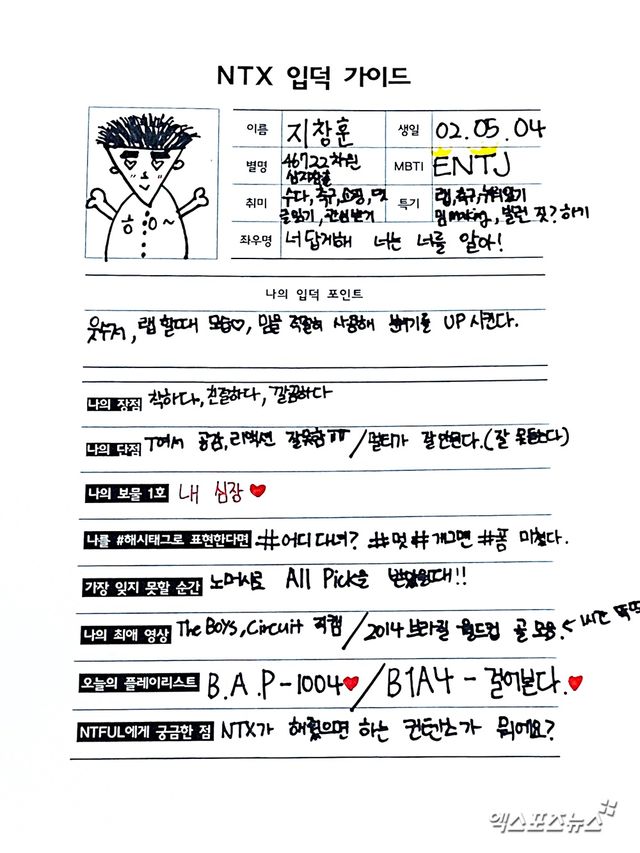 NTX 입덕 가이드
이름 지창훈 생일 02.05.04
별명 4차원 MBTI ENTJ
취미 수다, 축구, 쇼핑, 멋 특기 랩, 축구,
좌우명 너답게해 너는 너를 알아!
ㅎㅇ~
나의 입덕 포인트
웃수저, 랩 할때 모습♡, 밈을 적절히 사용해 분위기를 UP 시킨다.
나의 장점 착하다, 친절하다, 깔끔하다
나의 단점 T여서 공감, 리액션 잘못함ㅠㅠ / 멀티가 잘안된다. (잘 못듣는다)
나의 보물 1호 내 심장♥
나를 #해시태그로 표현한다면 #어디다녀? #멋 #개그맨 #폼 미쳤다.
가장 잊지 못할 순간 노머시로 All Pick을 받았을때!!
나의 최애 영상 The Boys, Circuit 직캠 / 2014 브라질 월드컵 골 모음.
오늘의 플레이리스트 B.A.P-1004♥ / B1A4 - 걸어본다.♥
NTFUL에게 궁금한 점 NTX가 해줬으면 하는 컨텐츠가 뭐에요?
엑스포츠뉴스